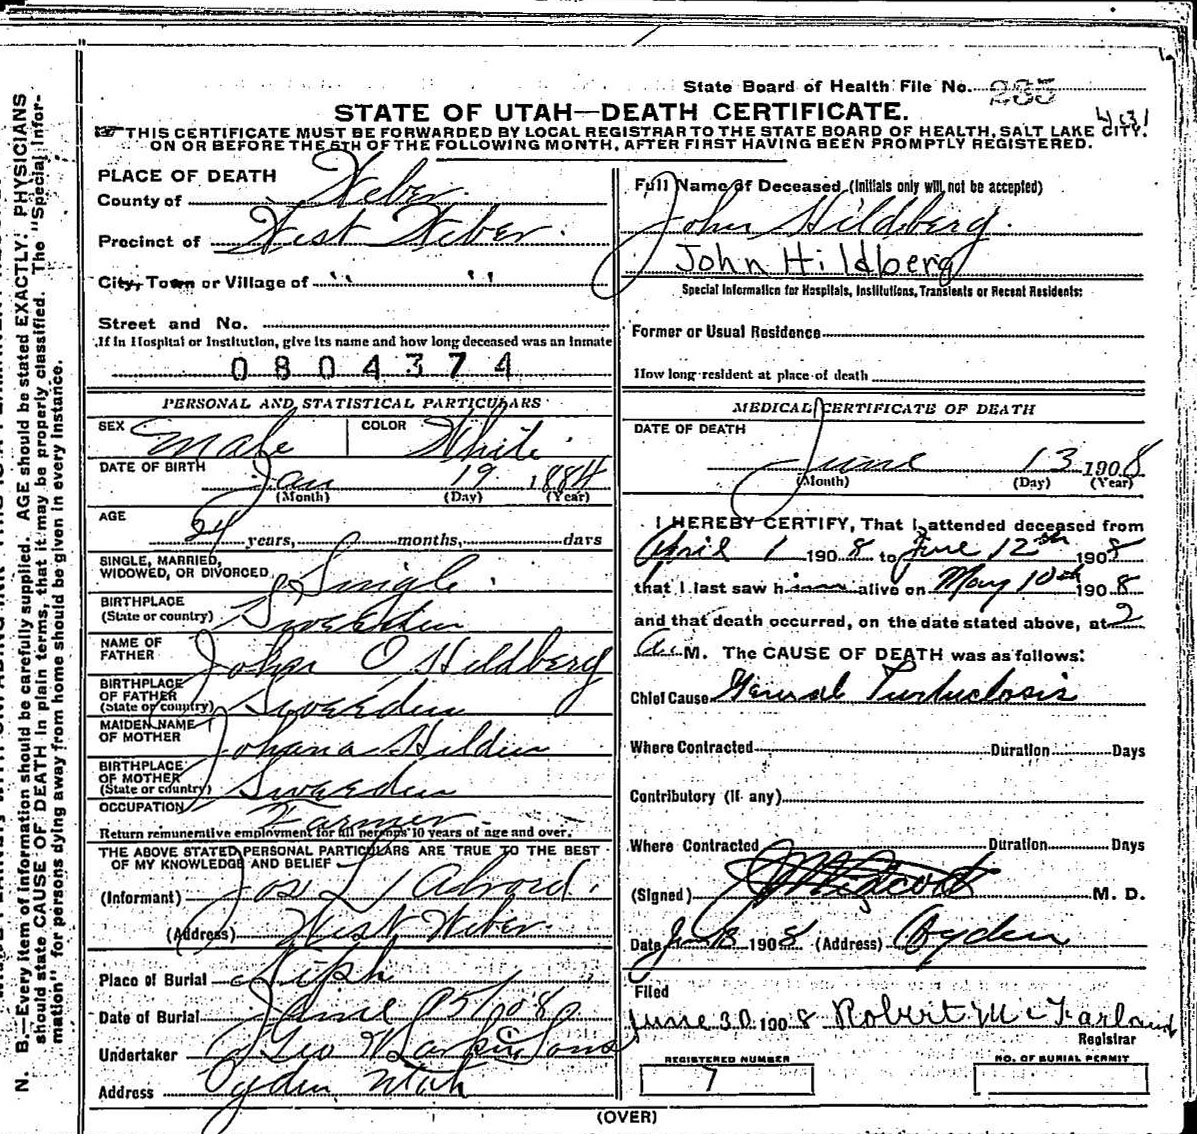 N. B.—Every item of information should be carefully supplied. AGE should be stated EXACTLY. PHYSICIANS
should state CAUSE OF DEATH in plain terms, that it may be properly classified. The "Special Infor-
mation" for persons dying away from home should be given in every instance.
State Board of Health File No. 235
STATE OF UTAH—DEATH CERTIFICATE.
THIS CERTIFICATE MUST BE FORWARDED BY LOCAL REGISTRAR TO THE STATE BOARD OF HEALTH, SALT LAKE CITY,
ON OR BEFORE THE 5TH OF THE FOLLOWING MONTH, AFTER FIRST HAVING BEEN PROMPTLY REGISTERED.
PLACE OF DEATH
County of Weber
Precinct of West Weber
City, Town or Village of " "
Street and No.
If in Hospital or Institution, give its name and how long deceased was an Inmate
0804374
PERSONAL AND STATISTICAL PARTICULARS
SEX Male COLOR White
DATE OF BIRTH Jan 19 1884
(Month) (Day) (Year)
AGE 24 years, months, days
SINGLE, MARRIED,
WIDOWED, OR DIVORCED Single
BIRTHPLACE
(State or country) Sweeden
NAME OF
FATHER Johan O Hildberg
BIRTHPLACE
OF FATHER
(State or country) Sweeden
MAIDEN NAME
OF MOTHER Johana Hilden
BIRTHPLACE
OF MOTHER
(State or country) Sweeden
OCCUPATION Farmer
Return remunerative employment for all persons 10 years of age and over.
THE ABOVE STATED PERSONAL PARTICULARS ARE TRUE TO THE BEST
OF MY KNOWLEDGE AND BELIEF
(Informant) Jos L
(Address) West Weber
Place of Burial
Date of Burial June 15 1908
Undertaker Geo Sons
Address Ogden Utah
Full Name of Deceased (Initials only will not be accepted)
John Hildberg
John Hildberg
Special Information for Hospitals, Institutions, Transients or Recent Residents:
Former or Usual Residence
How long resident at place of death
MEDICAL CERTIFICATE OF DEATH
DATE OF DEATH
June 13 1908
(Month) (Day) (Year)
I HEREBY CERTIFY, That I attended deceased from
April 1 1908 to June 12th 1908
that I last saw him alive on May 10th 1908
and that death occurred, on the date stated above, at 2
A. M. The CAUSE OF DEATH was as follows:
Chief Cause General Turbuclosis
Where Contracted Duration Days
Contributory (If any)
Where Contracted Duration Days
(Signed) M. D.
Date 1908 (Address) Ogden
Filed
June 30 1908 Robert McFarland
Registrar
REGISTERED NUMBER
7
NO. OF BURIAL PERMIT
(OVER)